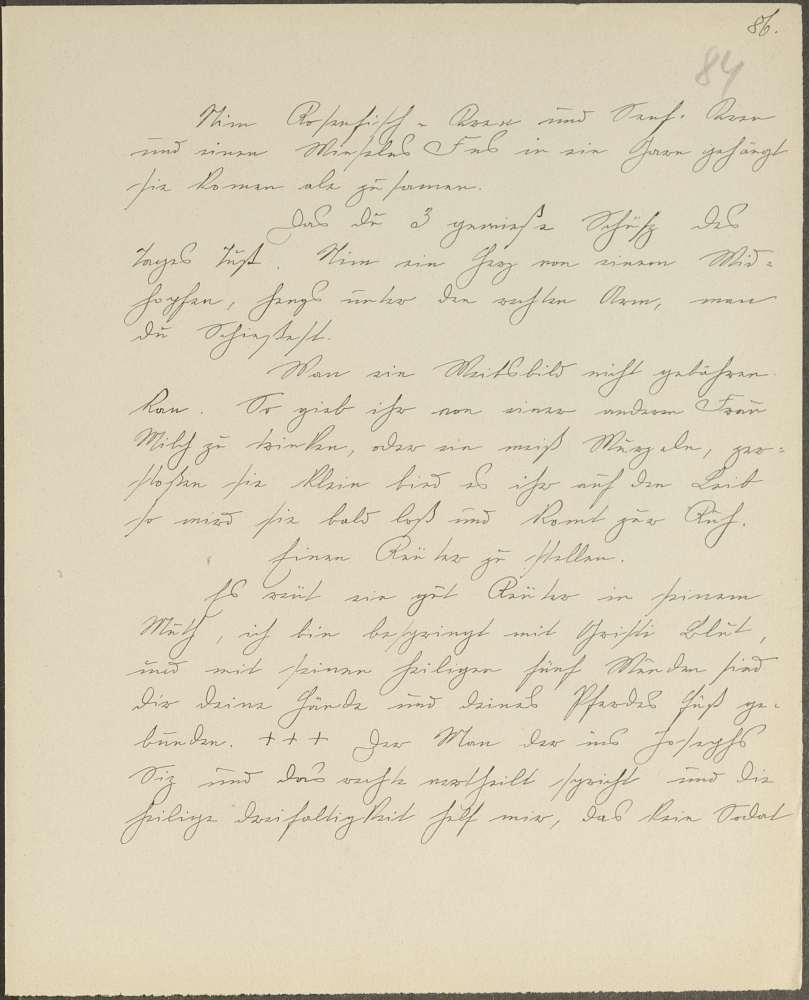 86.
84
Nim Rosenfisch - Kren und Senf. Kren
und einen Wiesels Fus in ein Garn gehängt
sie komen ale zusamen.
Das du 3 gewieße Schüsz des
Tages Tust. Nim ein Herz von einem Wid=
hopfen, hengs unter den rechten Arm, wenn
du Schießest.
Wan ein Weitsbild nicht gebähren
kan. So gieb ihr von einer anderen Frau
Milch zu trinken, oder ein weiß Wurzeln, zer=
stoßen sie klein bind es ihr auf den Leib
so wird sie bald loß und komt zur Ruh.
Einen Reuter zu stellen.
Es reut ein gut Reuter in seinem
Muth, ich bin bespringt mit Christi Blut,
und mit seinen heiligen fünf Wunden sind
dir deine Hände und deines Pferdes Fuß ge-
bunden. + + + Der Man der ins Josephs
Siz und das rechte vertheilt spricht und die
heilige dreifaltigkeit helf mir, das kein Sodat